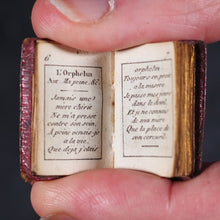 6
L'Orphelin
Air Ma peine &c.
Jamais une
mere chérie
Ne m'a pressé
contre son sein,
A peine venais-je
a la vie,
Que déja j'étais
orphelin
Toujours en proie
a la misere
Je passe mes jours
dans le deuil,
Et je ne connais
de ma mere
Que la place de
son cercueil.